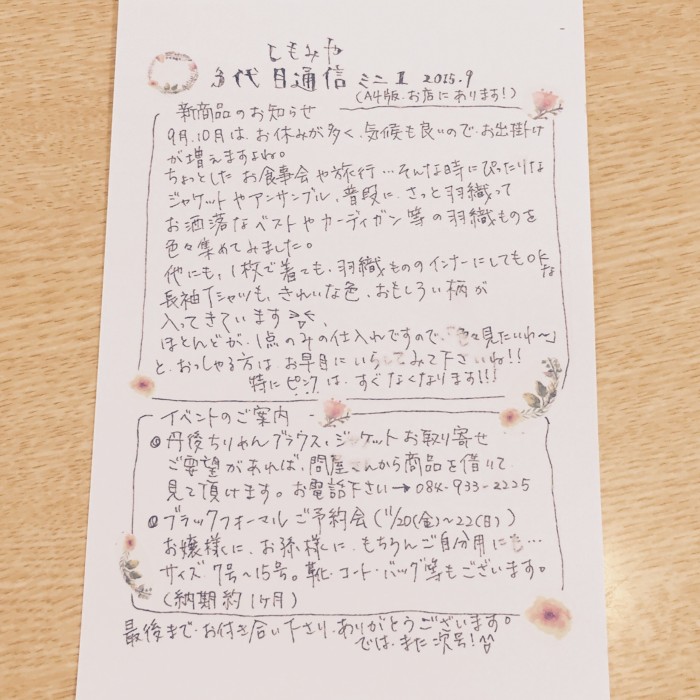 しもみや
3代目通信 ミニⅡ 2015.9
(A4版.お店にあります!)
新商品のお知らせ
9月、10月は、お休みが多く、気候も良いので、お出掛け
が増えますよね。
ちょっとしたお食事会や旅行…そんな時にぴったりな
ジャケットやアンサンブル、普段に、さっと羽織って
お洒落なベストやカーディガン等の羽織ものを
色々集めてみました。
他にも、1枚で着ても、羽織もののインナーにしてもOKな
長袖Tシャツも、きれいな色、おもしろい柄が
入ってきています
ほとんどが、1点のみの仕入れですので、「色々見たいわ〜」
と、おっしゃる方は お早目にいらしてみて下さいね!!
特にピンクは、すぐなくなります!!!
イベントのご案内
丹後ちりめんブラウス、ジャケットお取り寄せ
ご要望があれば、問屋さんから商品を借りて
見て頂けます。お電話下さい→084-933-2225
ブラックフォーマルご予約会(11/20(金)~22(日))
お嬢様に、お孫様に、もちろんご自分用にも…
サイズ 7号~15号。靴・コート・バッグ等もございます。
(納期約1ヶ月)
最後まで、お付き合い下さり、ありがとうございます。
では、また次号!^^